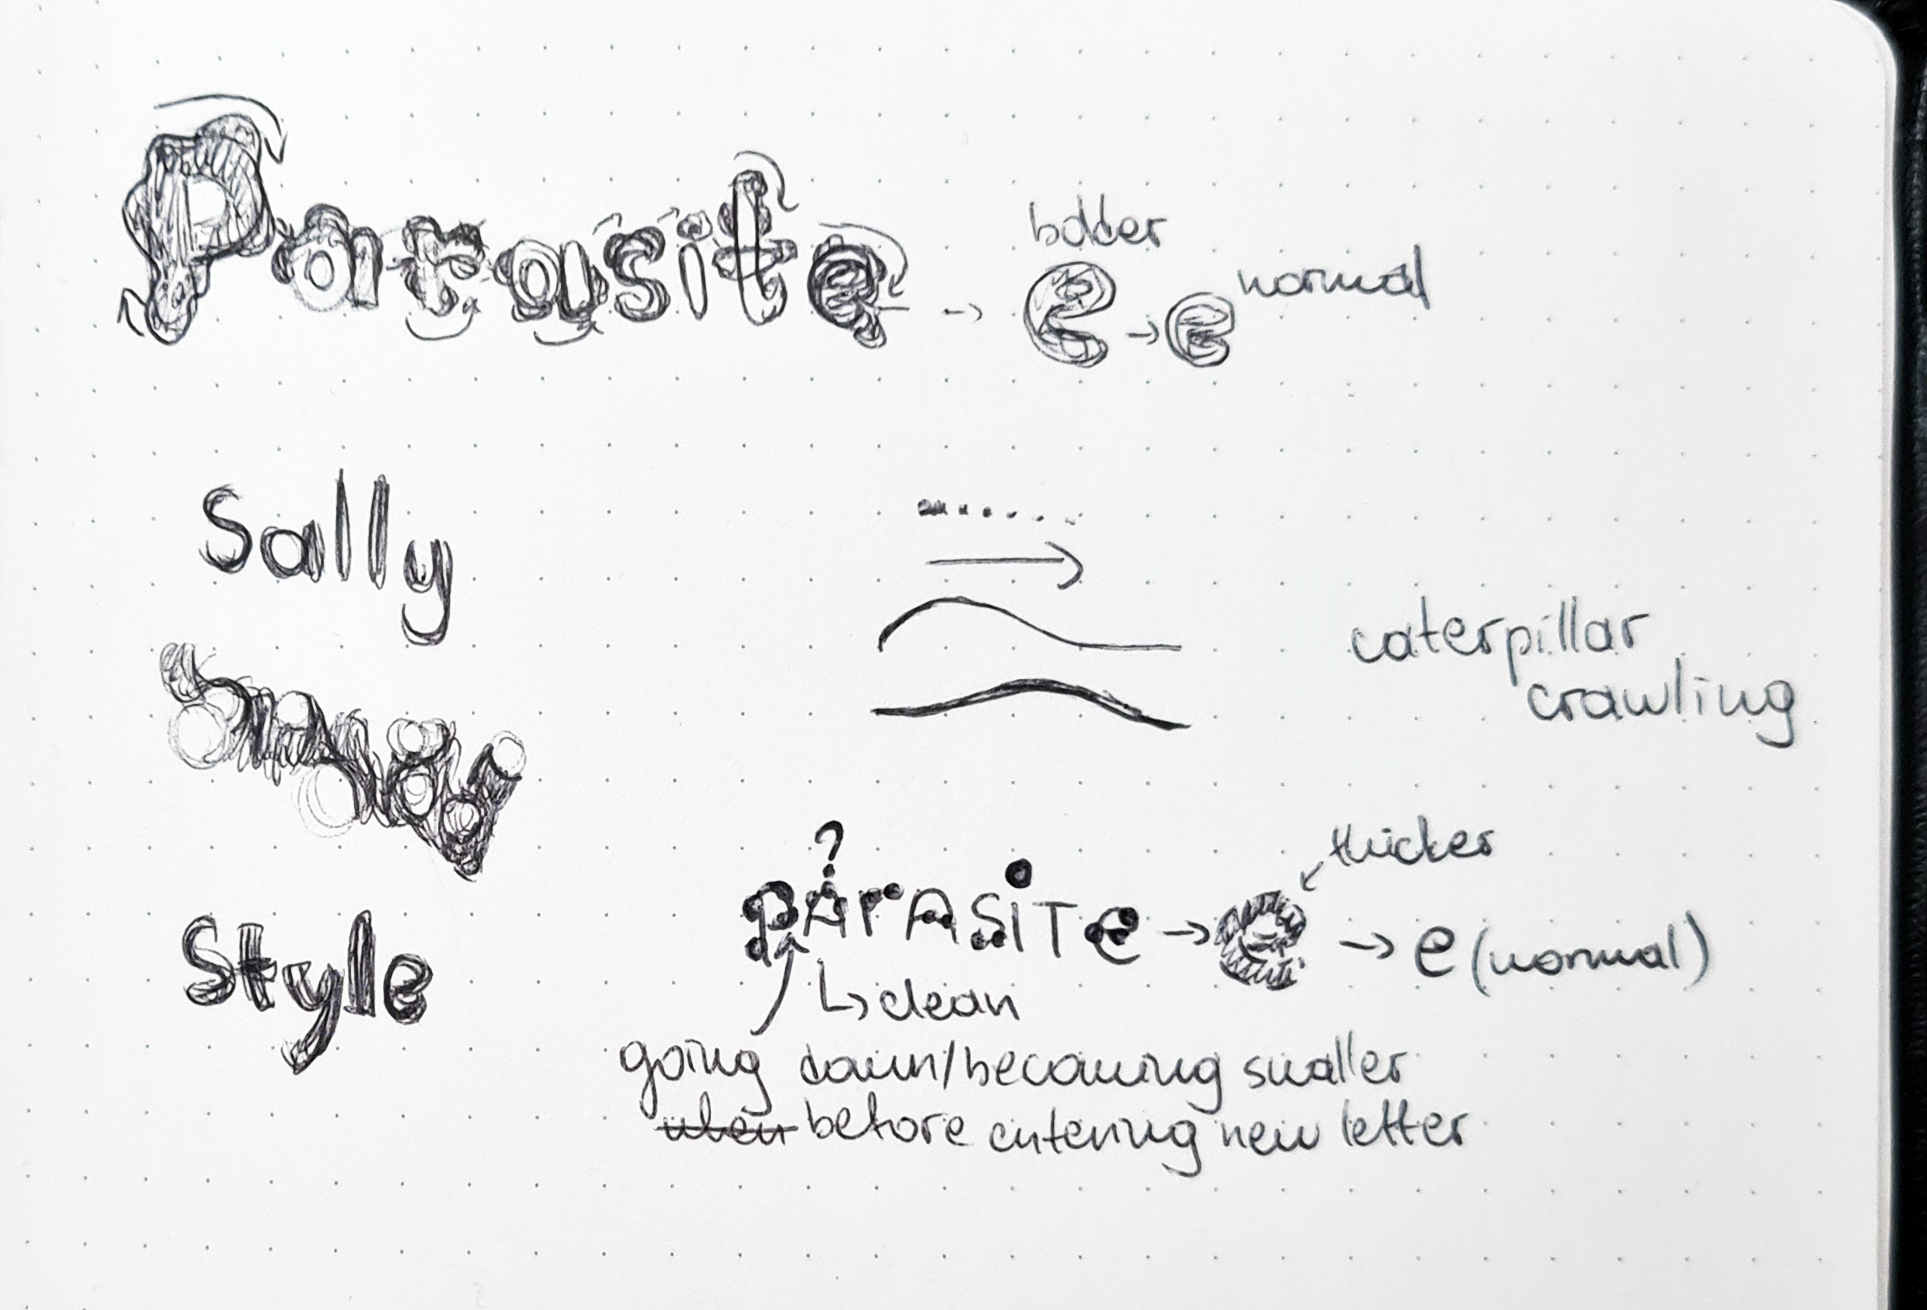 Parasite
bolder
e
e
normal
Sally
caterpillar
crawling
?
pArASiTe
thicker
e
e (normal)
Style
clean
going down/becoming smaller
when before entering new letter